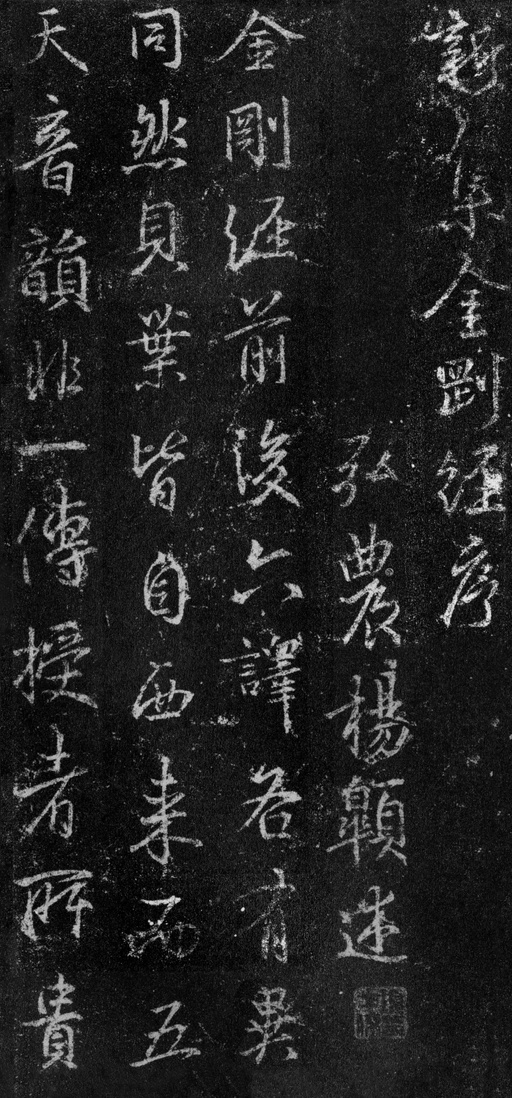 新集金剛經序
弘農楊顗述
金剛經前後六譯各有異
同然貝葉皆自西來而五
天音韻非一傳授者所貴